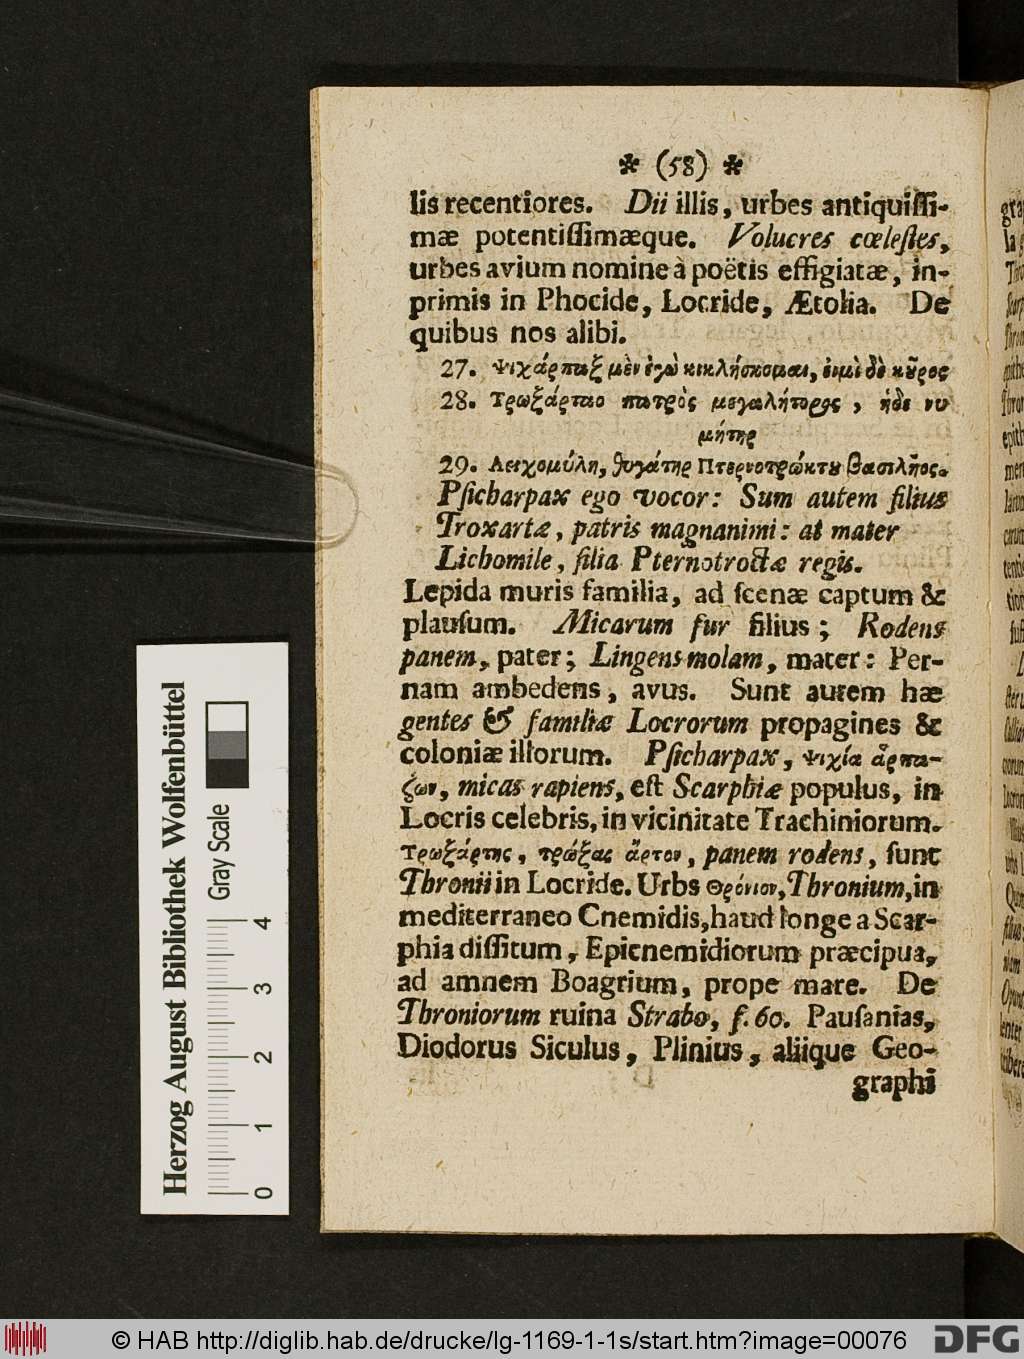 * (58) *
lis recentiores. Dii illis, urbes antiquiſſi-
mæ potentiſſimæque. Volucres cœleſtes,
urbes avium nomine à poëtis effigiatæ, in-
primis in Phocide, Locride, Ætolia. De
quibus nos alibi.
27. Ψιχάρπαξ μὲν ἐγὼ κικλήσκομαι, ἐιμὶ δὲ κῦρος
28. Τρωξάρταο πατρὸς μεγαλήτορος, ἠδέ νυ
μήτηρ
29. Λειχομύλη, θυγάτηρ Πτερνοτρώκτȣ βασιλῆος.
Pſicharpax ego vocor: Sum autem filius
Troxartæ, patris magnanimi: at mater
Lichomile, filia Pternotroctæ regis.
Lepida muris familia, ad ſcenæ captum &
plauſum. Micarum fur filius; Rodens
panem, pater; Lingens molam, mater: Per-
nam ambedens, avus. Sunt autem hæ
gentes & familiæ Locrorum propagines &
coloniæ illorum. Pſicharpax, ψιχία ἅρπα-
ζων, micas rapiens, eſt Scarphiæ populus, in
Locris celebris, in vicinitate Trachiniorum.
Τρωξάρτης, τρώξας ἄρτον, panem rodens, ſunt
Thronii in Locride. Urbs Θρόνιον, Thronium, in
mediterraneo Cnemidis, haud longe a Scar-
phia diſſitum, Epicnemidiorum præcipua,
ad amnem Boagrium, prope mare. De
Throniorum ruina Strabo, f. 60. Pauſanias,
Diodorus Siculus, Plinius, aliique Geo-
graphi
Herzog August Bibliothek Wolfenbüttel
Gray Scale
0 1 2 3 4
© HAB http://diglib.hab.de/drucke/lg-1169-1-1s/start.htm?image=00076
DFG